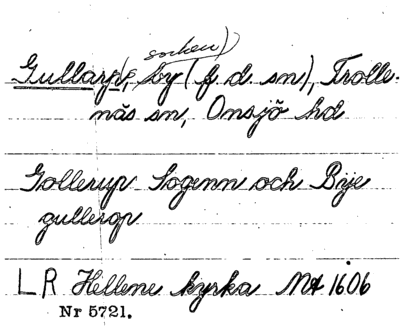 socken)
Gullarp(s, by (f. d. sn), Trolle-
näs sn, Onsjö hd
Gollerup Sogenn och Bije
gullerop
LR Hellene kyrka Mt 1606
Nr 5721.